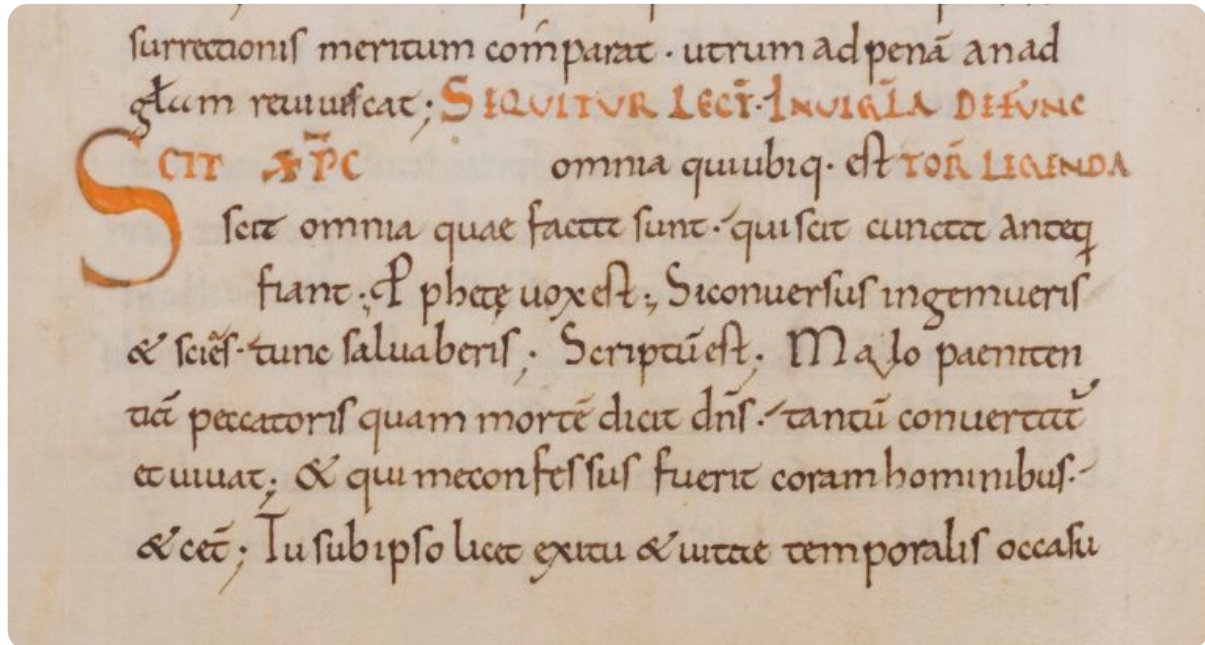 surrectionis meritum comparat · utrum ad penā an ad
głam reuiuiscat; SEQUITUR LECT̄· IN UIGĪLA DEFUNC
SCIT XP̄C omnia qui ubiq· est TOR̄ LEGENDA
scit omnia quae facta sunt· qui scit cuncta anteq
fiant; Pphetę uox est; Si conuersus ingemueris
& sciēs· tunc saluaberis; Scriptū est; Malo paeniten
tiā peccatoris quam mortē dicit dn̄s· tantū conuertat᷑
et uiuat; & qui me confessus fuerit coram hominibus·
& cet̄; Tu sub ipso licet exitu & uitae temporalis occasu